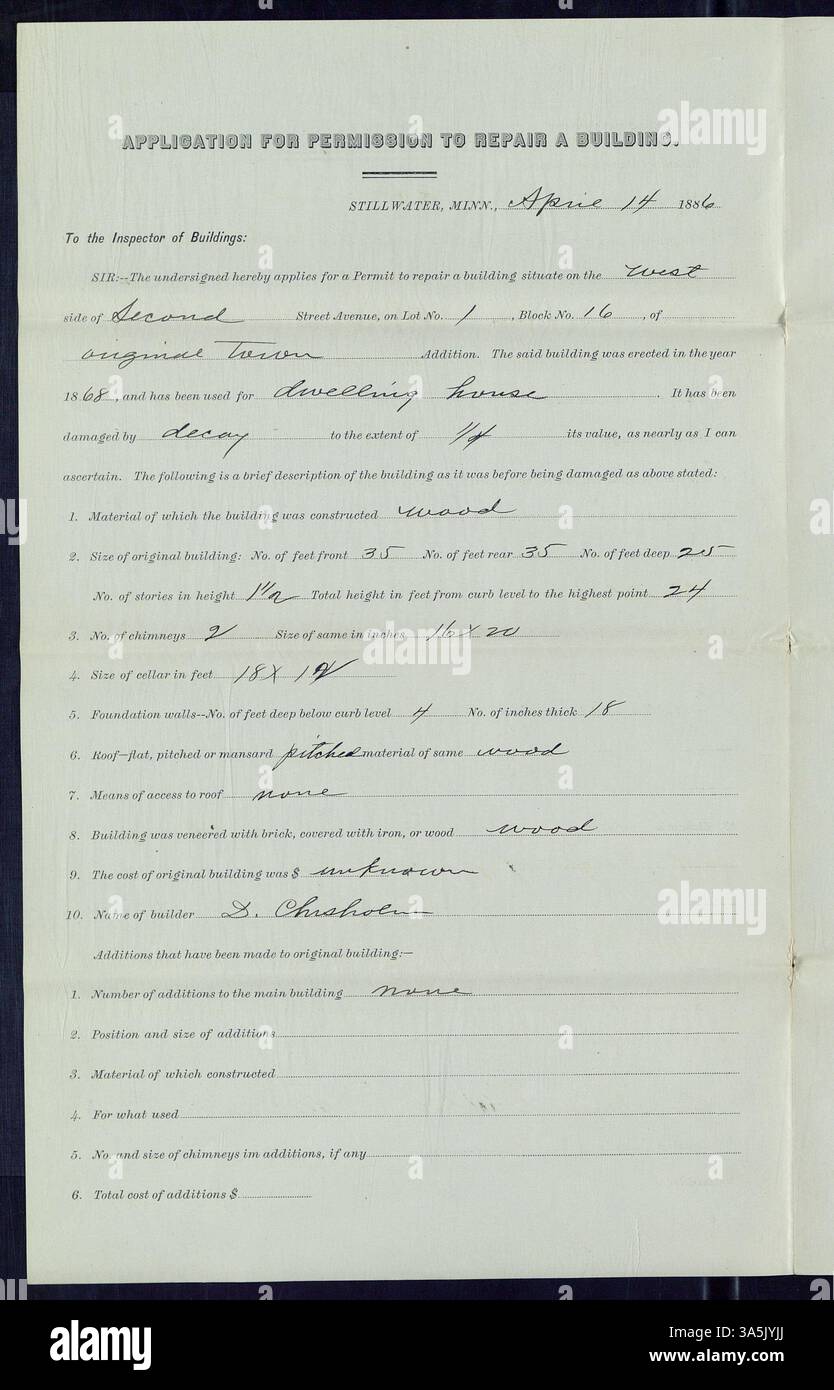 APPLICATION FOR PERMISSION TO REPAIR A BUILDING.
STILLWATER, MINN., April 14 1886
To the Inspector of Buildings:
SIR:--The undersigned hereby applies for a Permit to repair a building situate on the west
side of Second Street Avenue, on Lot No. 1, Block No. 16, of
original Town Addition. The said building was erected in the year
1868, and has been used for dwelling house. It has been
damaged by decay to the extent of 1/4 its value, as nearly as I can
ascertain. The following is a brief description of the building as it was before being damaged as above stated:
1. Material of which the building was constructed wood
2. Size of original building: No. of feet front 35 No. of feet rear 35 No. of feet deep 25
No. of stories in height 1 1/2 Total height in feet from curb level to the highest point 24
3. No. of chimneys 2 Size of same in inches 16 x 20
4. Size of cellar in feet 18 x 12
5. Foundation walls--No. of feet deep below curb level 4 No. of inches thick 18
6. Roof--flat, pitched or mansard pitched material of same wood
7. Means of access to roof none
8. Building was veneered with brick, covered with iron, or wood wood
9. The cost of original building was $ unknown
10. Name of builder D. Chisholm
Additions that have been made to original building:--
1. Number of additions to the main building none
2. Position and size of additions
3. Material of which constructed
4. For what used
5. No. and size of chimneys im additions, if any
6. Total cost of additions $
alamy
alamy
alamy
alamy
Image ID: 3A5JYJJ
www.alamy.com